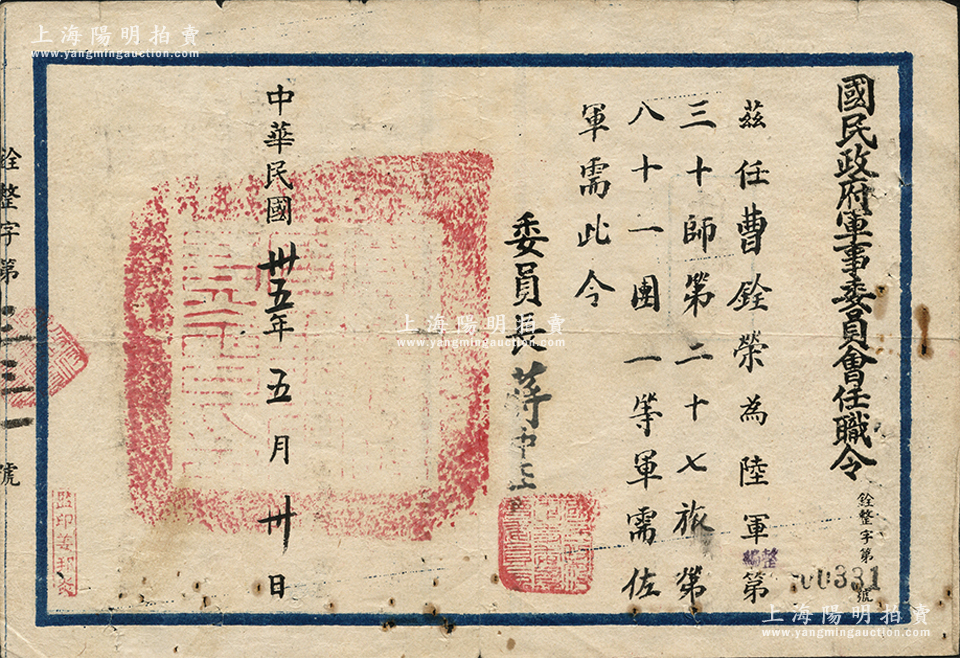 國民政府軍事委員會任職令
銓整字第00331號
茲任曹銓榮為陸軍整編第
三十師第二十七旅第
八十一團一等軍需佐
軍需此令
委員長蔣中正
中華民國卅五年五月卅日
銓整字第三三一號
上海陽明拍賣
www.yangmingauction.com
上海陽明拍賣
www.yangmingauction.com
上海陽明拍賣
www.yangmingauction.com